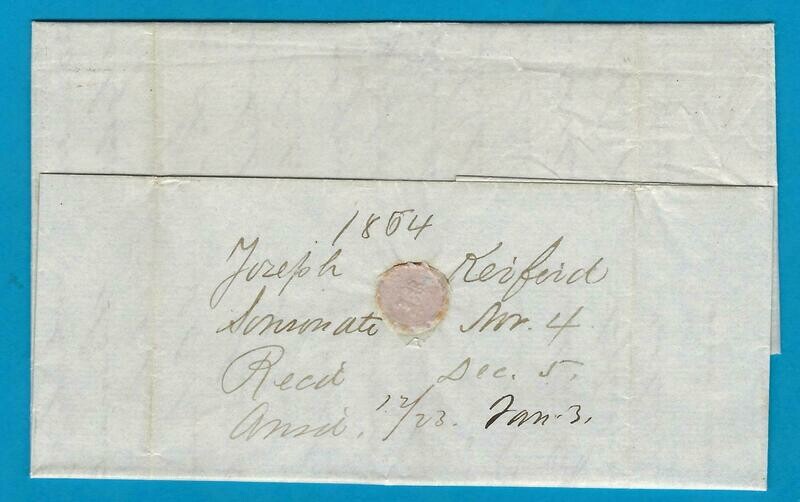 1864
Joseph
Sonsonate Nov. 4
Recd Dec. 5.
Ansd. 12/23. Jan. 3.